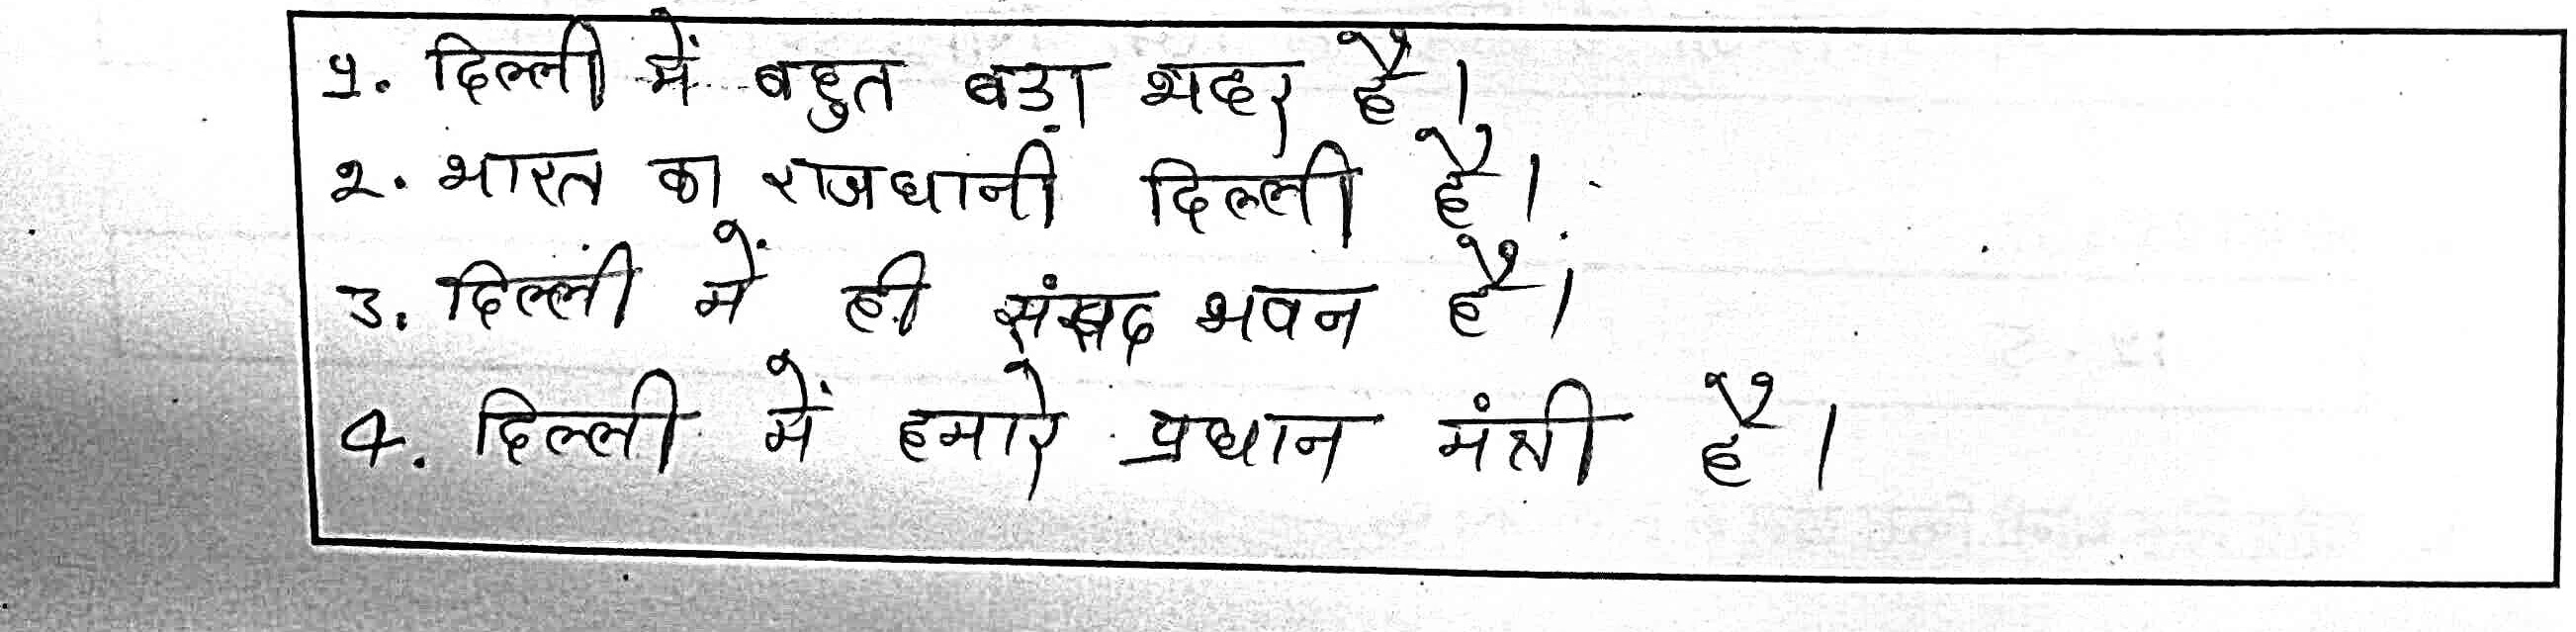 १. दिल्ली में बहुत बड़ा भदर है।
२. भारत का राजधानी दिल्ली है।
३. दिल्ली में ही संसद भवन है।
४. दिल्ली में हमारे प्रधान मंत्री है।